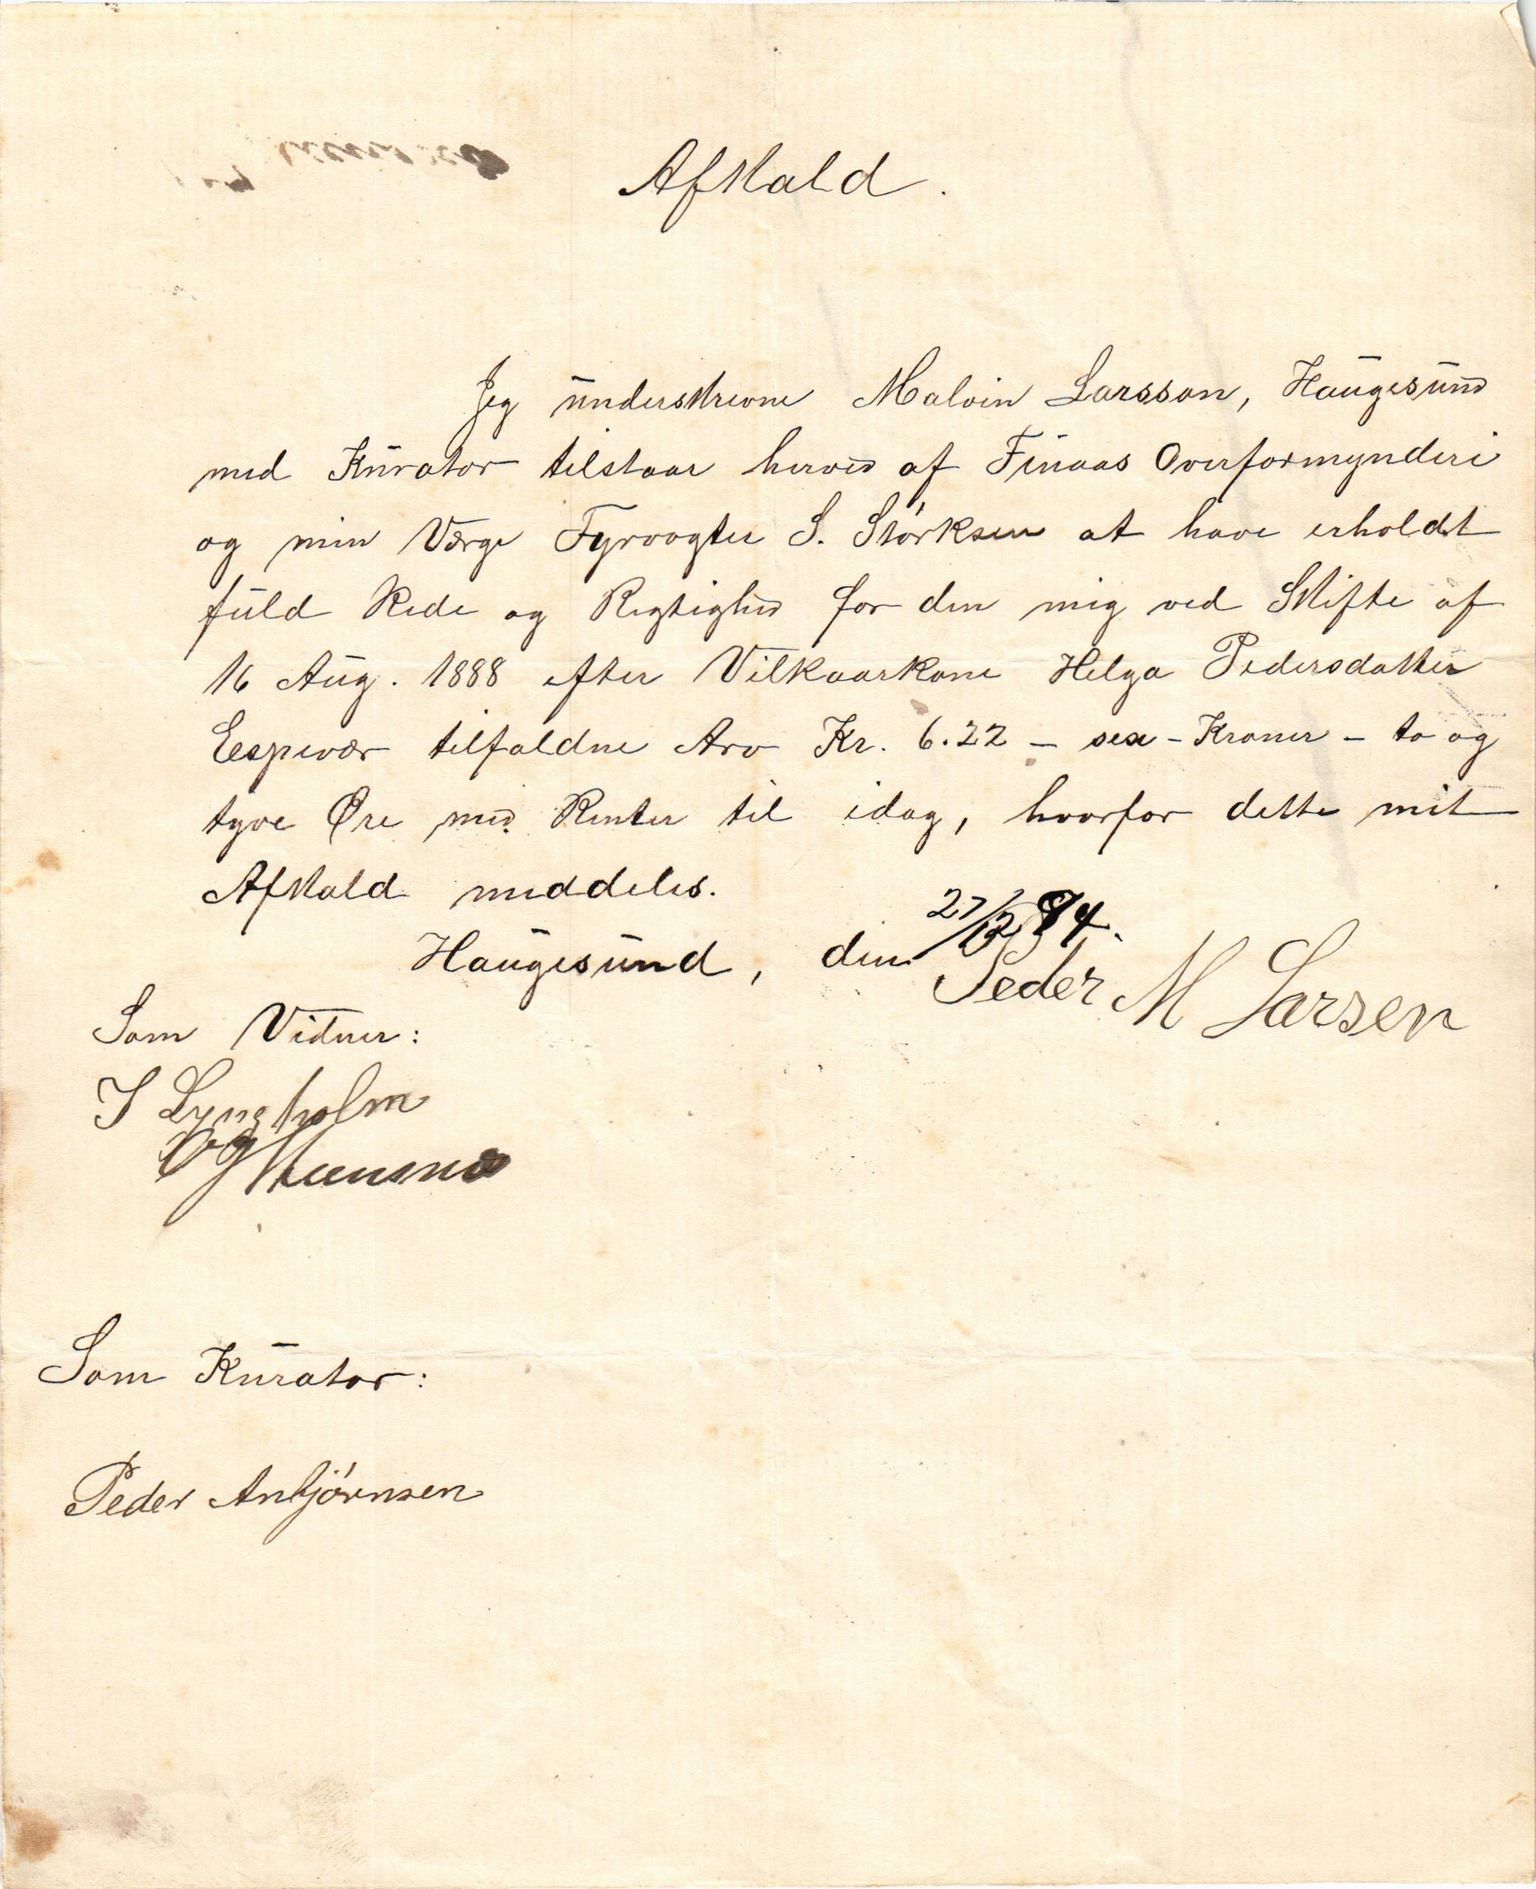 Afkald.
Jeg underskrevne Malvin Larsson, Haugesund
med Kurator tilstaar herved af Finaas Overformynderi
og min Værge Fyrvogter S. Størksen at have erholdt
fuld Rede og Rigtighed for den mig ved Skifte af
16 Aug. 1888 efter Vilkaarkone Helga Pedersdatter
Eespevær tilfaldne Arv Kr. 6.22 – sex – Kroner – to og
tyve Øre med Renter til idag, hvorfor dette mit
Afkald meddeles.
Haugesund, den 27/12 94.
Peder M Larsen
Som Vidner:
I Lyngholm
Som Kurator:
Peder Anbjørnsen